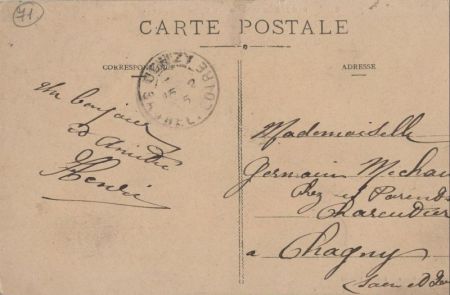 71
CARTE POSTALE
CORRESPONDANCE
ADRESSE
Un bonjour
d'Amitié
Henri
Mademoiselle
Germain Mechau
Chez ses Parents
Charcutier
a Chagny
Saone et Loi